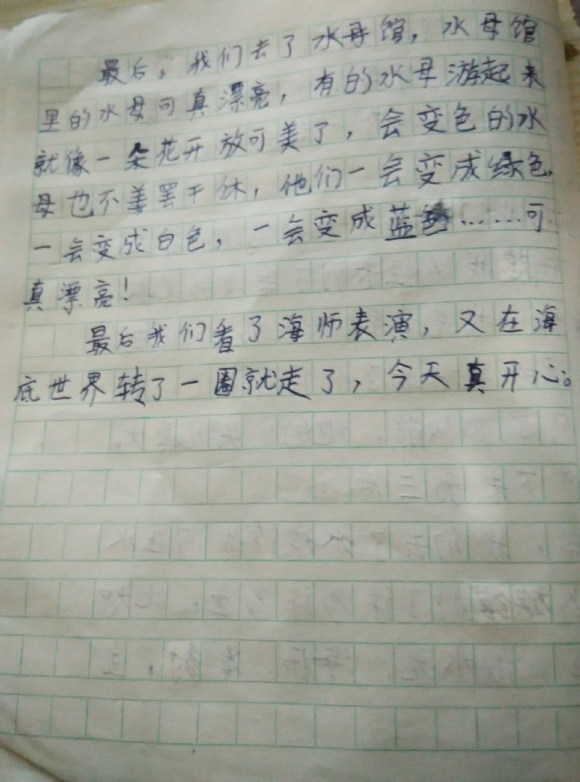 最后，我们去了水母馆，水母馆
里的水母可真漂亮，有的水母游起来
就像一朵花开放可美了，会变色的水
母也不善罢干休，他们一会变成绿色，
一会变成白色，一会变成蓝色……可
真漂亮！
最后我们看了海师表演，又在海
底世界转了一圈就走了，今天真开心。